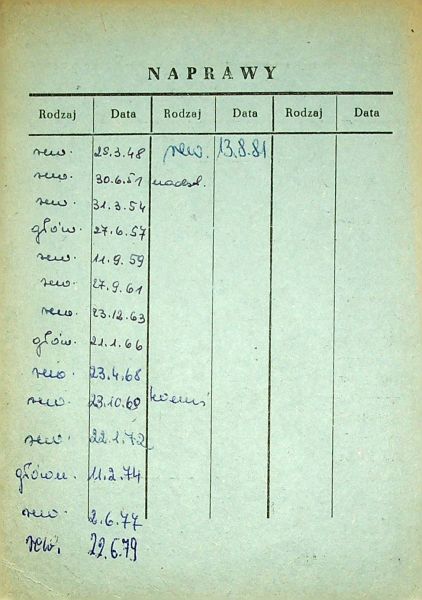 NAPRAWY
Rodzaj Data Rodzaj Data Rodzaj Data
rew. 25.3.48 rew. 13.8.81
rew. 30.6.51 nadzł.
rew. 31.3.54
głów. 27.6.57
rew. 11.9.59
rew. 27.9.61
rew. 23.12.63
głów. 21.1.66
rew. 23.4.68
rew. 23.10.69
rew. 22.1.72
główn. 11.2.74
rew. 2.6.77
rew. 22.6.79